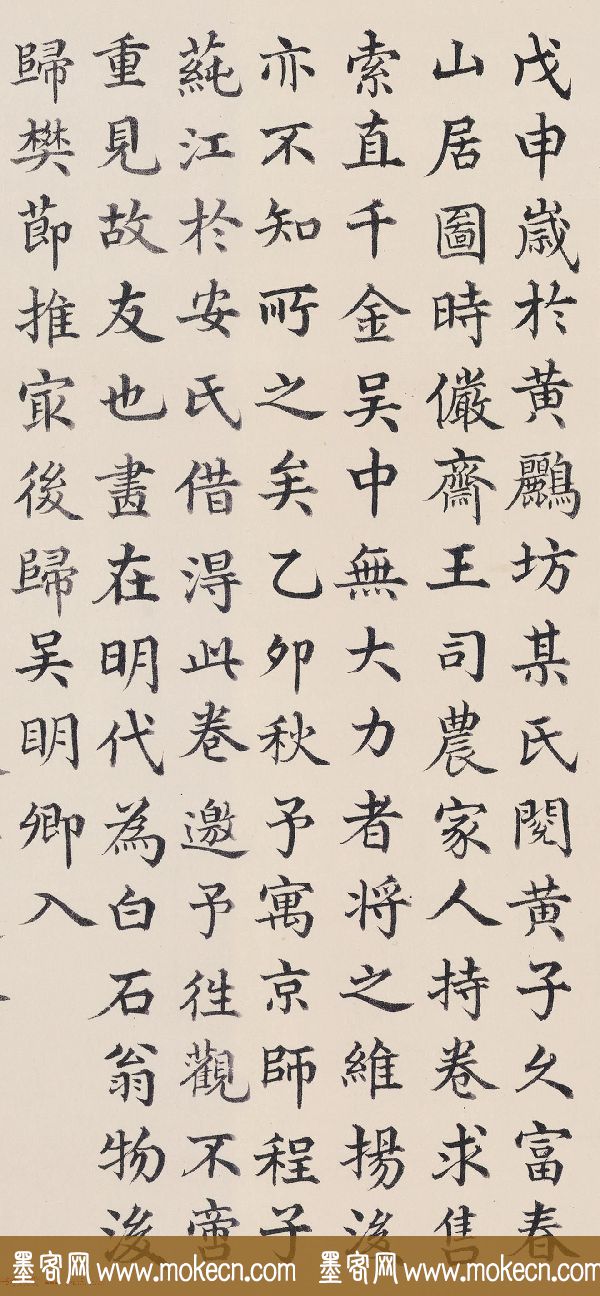 戊申歲於黃鸝坊某氏閱黃子久富春
山居圖時儼齋王司農家人持卷求售
索直千金吳中無大力者將之維揚後
亦不知所之矣乙卯秋予寓京師程子
蒓江於安氏借得此卷邀予往觀不啻
重見故友也畫在明代為白石翁物後
歸樊節推寂後歸吳明卿入
墨客网 www.mokecn.com 墨客网 www.mokecn.com